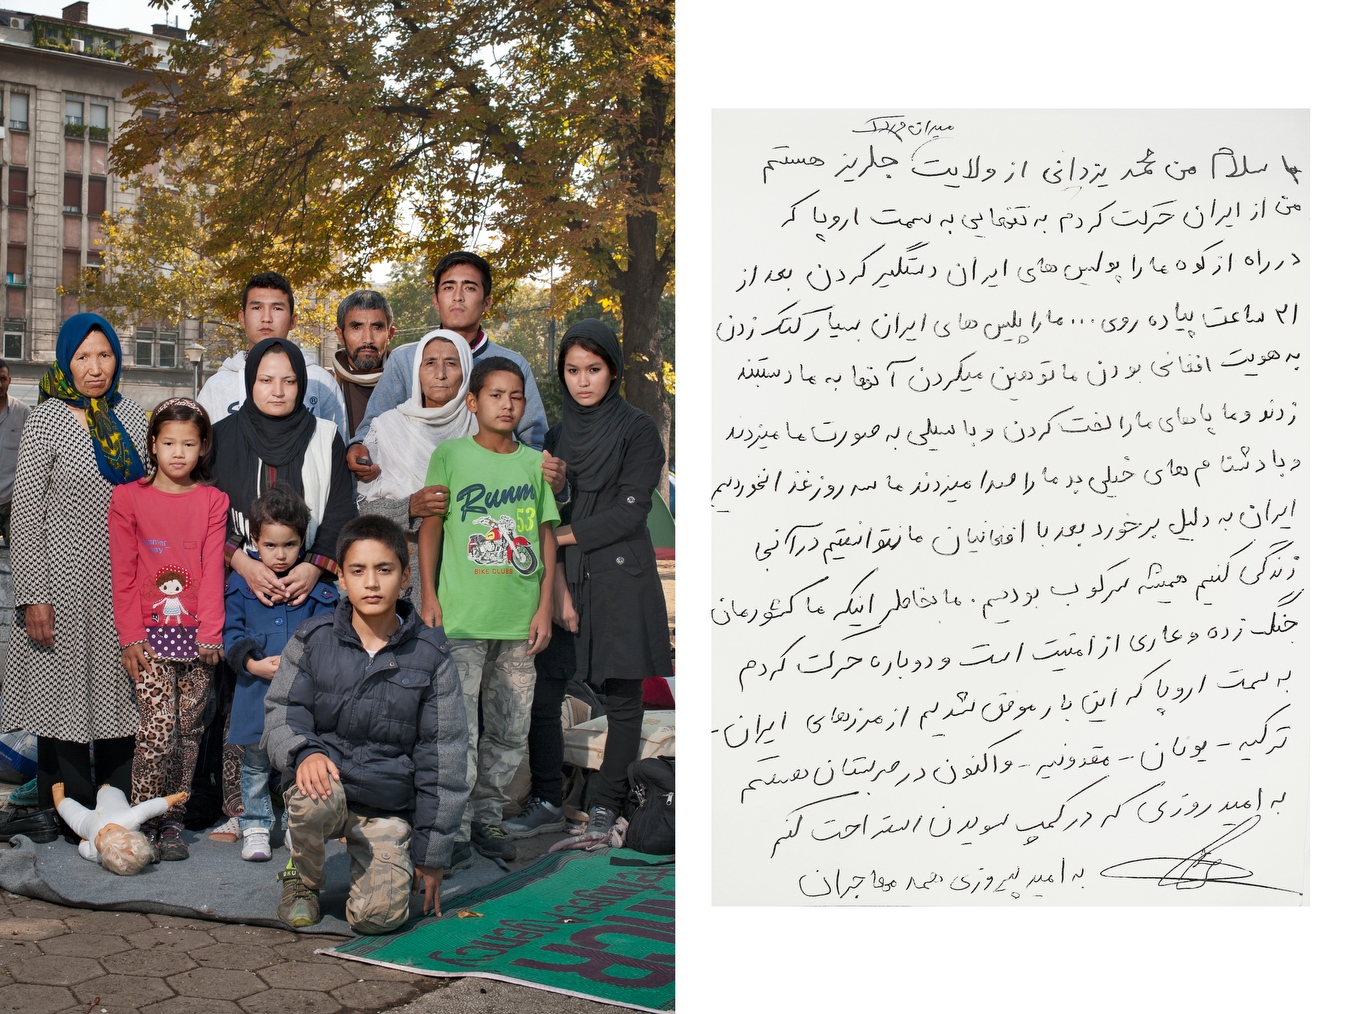 سلام من محمد یزدانی از ولایت جلریز هستم
من از ایران حرکت کردم به تنهایی به سمت اروپا که
در راه از کوه ما را پولیس های ایران دستگیر کردن بعد از
۲۱ ساعت پیاده روی... ما را پلیس های ایران بسیار کتک زدن
به هویت افغانی بودن ما توهین میکردن آنها به ما دستبند
زدند و ما پاهای ما را لخت کردن و با سیلی به صورت ما میزدند
و با دشنام های خیلی بد ما را صدا میزدند ما سه روز غذا نخوردیم
ایران به دلیل برخورد بعد با افغانیان ما نتوانستیم در آنجا
زندگی کنیم همیشه سرکوب بودیم. ما بخاطر اینکه ما کشورمان
جنگ زده و عاری از امنیت است و دوباره حرکت کردم
به سمت اروپا که این بار موفق شدیم از مرزهای ایران -
ترکیه - یونان - مقدونیه - واکنون در صربستان هستم
به امید روزی که در کمپ سویدن استراحت کنم
به امید پیروزی همه مهاجران
Runn
53
BIKE CLUBS